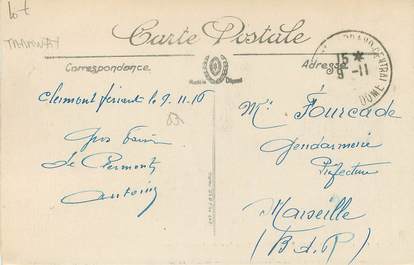 Lot
TRAMWAY
Carte Postale
Correspondance
Adresse
Modèle Déposé
15 *
9 -11
DOME
Clermont ferrant le 9.11.16
gros baiser
de Clermont
Antonin
Mr Fourcade
Gendarmerie
Préfecture
Marseille
(B.d.R)